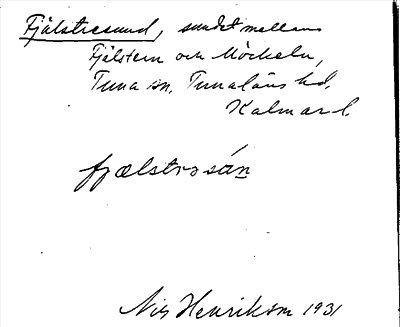 Fjälstresund, sundet mellan
Fjälstern och Möckeln,
Tuna sn, Tunaläns hd,
Kalmar l.
fjælstrəsán
Nils Henriksson 1931